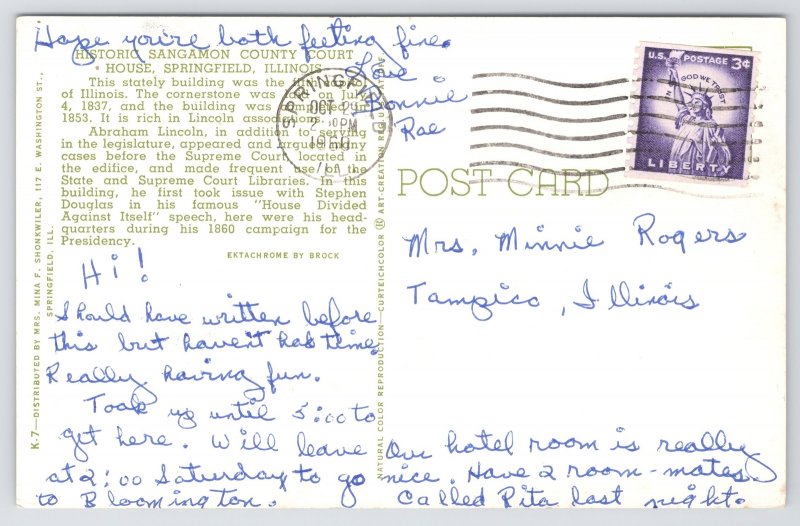 Hope you're both feeling fine.
Love
Bonnie
Rae
HISTORIC SANGAMON COUNTY COURT
HOUSE, SPRINGFIELD, ILLINOIS
This stately building was the
of Illinois. The cornerstone was on July
4, 1837, and the building was in
1853. It is rich in Lincoln associations.
Abraham Lincoln, in addition to serving
in the legislature, appeared and argued many
cases before the Supreme Court located in
the edifice, and made frequent use of the
State and Supreme Court Libraries. In this
building, he first took issue with Stephen
Douglas in his famous "House Divided
Against Itself" speech, here were his head-
quarters during his 1860 campaign for the
Presidency.
EKTACHROME BY BROCK
K-7—DISTRIBUTED BY MRS. MINA F. SHONKWILER, 117 E. WASHINGTON ST.,
SPRINGFIELD, ILL.
NATURAL COLOR REPRODUCTION—CURTEICHCOLOR ® ART-CREATION
SPRINGFIELD
OCT
PM
ILL.
U.S. POSTAGE 3¢
IN GOD WE TRUST
LIBERTY
POST CARD
Mrs. Minnie Rogers
Tampico, Illinois
Hi!
Should have written before
this but haven't had time.
Really having fun.
Took us until 5:00 to
get here. Will leave
at 2:00 Saturday to go
to Bloomington.
Our hotel room is really
nice. Have 2 room-mates.
Called Rita last night.